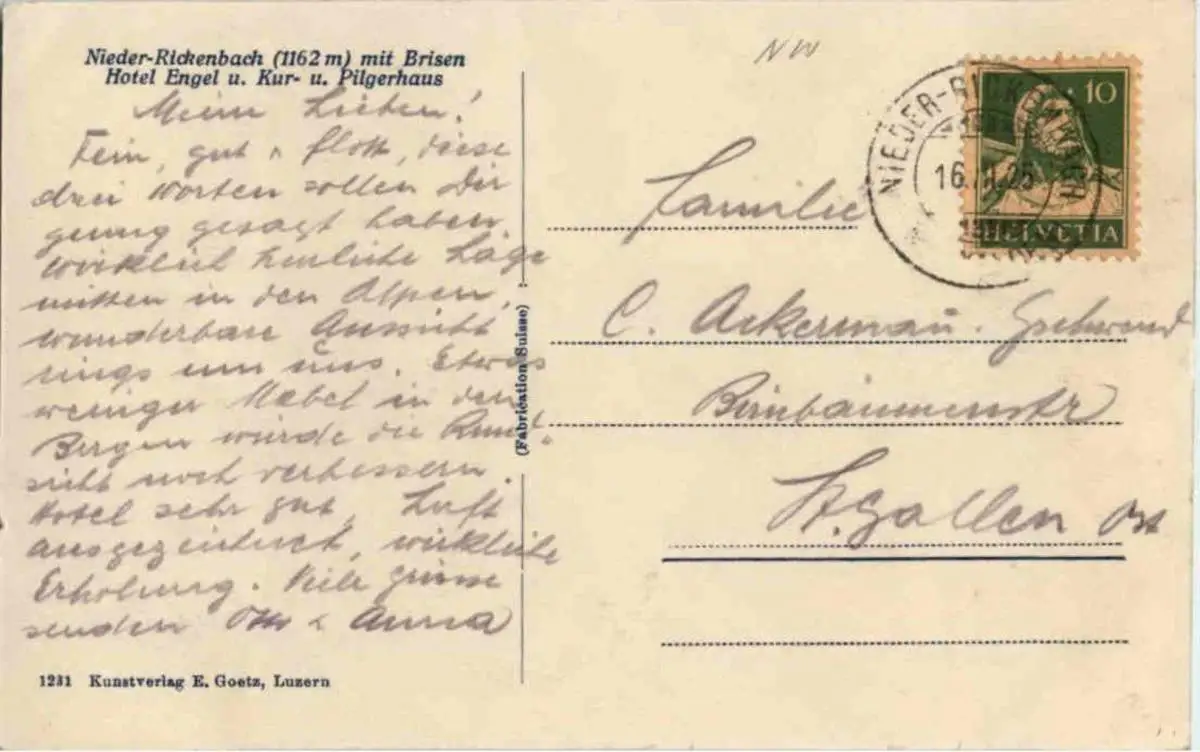 Nieder-Rickenbach (1162 m) mit Brisen
Hotel Engel u. Kur- u. Pilgerhaus
Meine Lieben!
Fein, gut & flott, diese
drei Worten sollen Dir
genug gesagt haben.
Wirklich herrliche Lage
mitten in den Alpen,
wunderbare Aussicht
rings um uns. Etwas
weniger Nebel in den
Bergen würde die Rund-
sicht noch verbessern.
Hotel sehr gut, Luft
ausgezeichnet, wirkliche
Erholung. Viele Grüsse
senden Otto & Anna
1231 Kunstverlag E. Goetz, Luzern
(Fabrication Suisse)
NW
NIEDER-RICKENBACH
10
HELVETIA
Familie
C. Ackermann-Gschwend
Birnbäumenstr
St. Gallen Ost